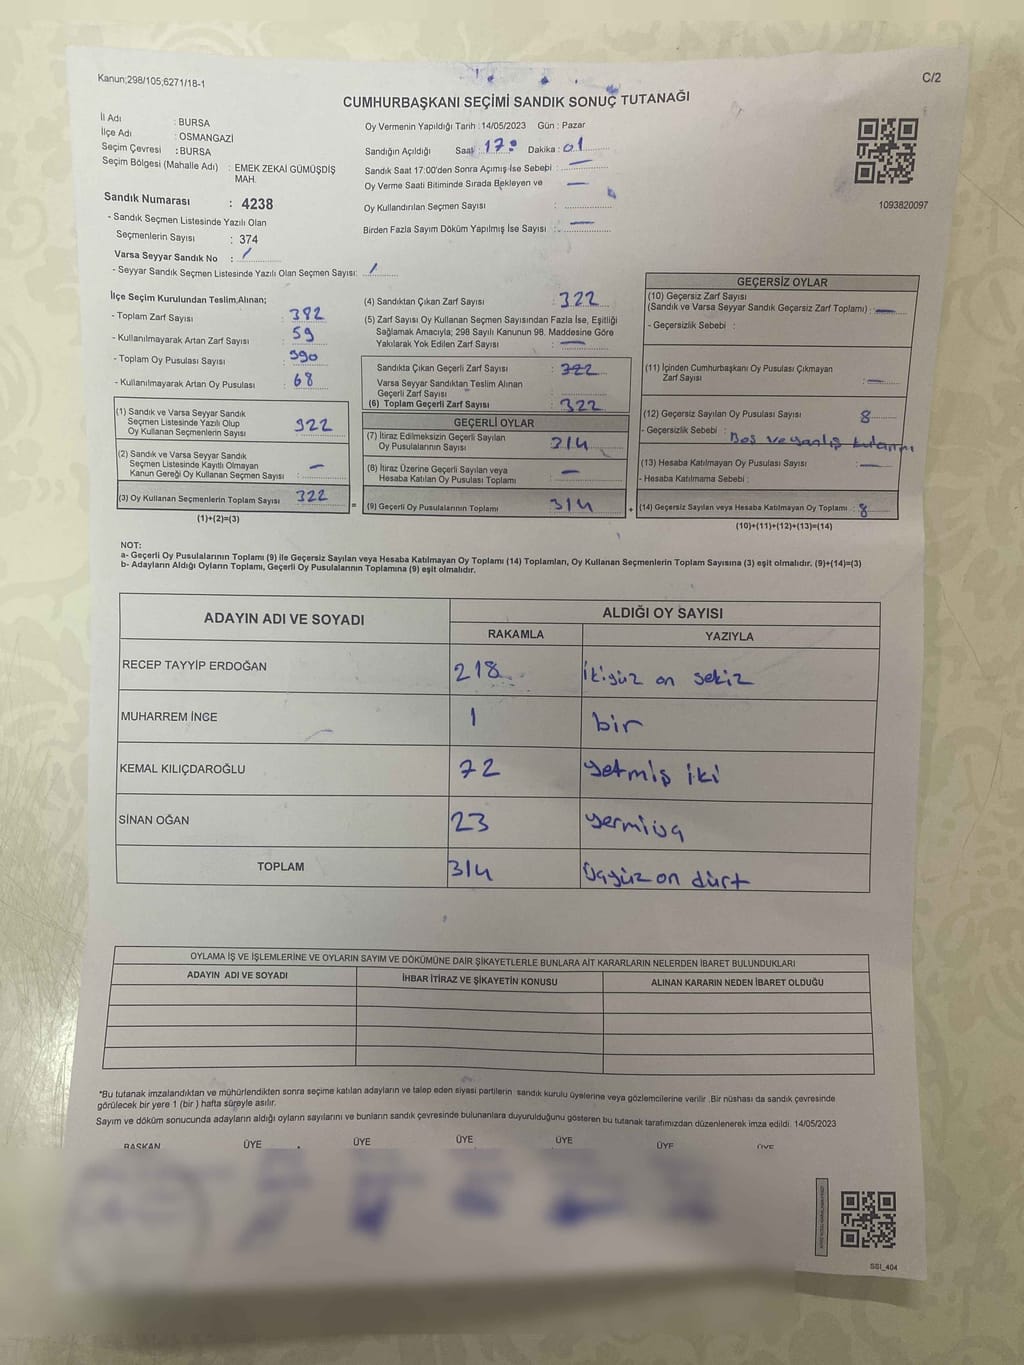 Kanun;298/105,6271/18-1
C/2
CUMHURBAŞKANI SEÇİMİ SANDIK SONUÇ TUTANAĞI
İl Adı : BURSA
İlçe Adı : OSMANGAZİ
Seçim Çevresi : BURSA
Seçim Bölgesi (Mahalle Adı) : EMEK ZEKAİ GÜMÜŞDİŞ
MAH.
Sandık Numarası : 4238
- Sandık Seçmen Listesinde Yazılı Olan
Seçmenlerin Sayısı : 374
Varsa Seyyar Sandık No : /
- Seyyar Sandık Seçmen Listesinde Yazılı Olan Seçmen Sayısı: /
Oy Vermenin Yapıldığı Tarih : 14/05/2023 Gün : Pazar
Sandığın Açıldığı Saat : 17: Dakika : 01
Sandık Saat 17:00'den Sonra Açımış İse Sebebi : —
Oy Verme Saati Bitiminde Sırada Bekleyen ve —
Oy Kullandırılan Seçmen Sayısı :
Birden Fazla Sayım Döküm Yapılmış İse Sayısı : —
1093820097
İlçe Seçim Kurulundan Teslim Alınan;
- Toplam Zarf Sayısı : 382
- Kullanılmayarak Artan Zarf Sayısı : 59
- Toplam Oy Pusulası Sayısı : 390
- Kullanılmayarak Artan Oy Pusulası : 68
(1) Sandık ve Varsa Seyyar Sandık
Seçmen Listesinde Yazılı Olup
Oy Kullanan Seçmenlerin Sayısı : 322
(2) Sandık ve Varsa Seyyar Sandık
Seçmen Listesinde Kayıtlı Olmayan
Kanun Gereği Oy Kullanan Seçmen Sayısı : —
(3) Oy Kullanan Seçmenlerin Toplam Sayısı : 322
(1)+(2)=(3)
(4) Sandıktan Çıkan Zarf Sayısı : 322
(5) Zarf Sayısı Oy Kullanan Seçmen Sayısından Fazla İse, Eşitliği
Sağlamak Amacıyla; 298 Sayılı Kanunun 98. Maddesine Göre
Yakılarak Yok Edilen Zarf Sayısı : —
Sandıkta Çıkan Geçerli Zarf Sayısı : 322
Varsa Seyyar Sandıktan Teslim Alınan
Geçerli Zarf Sayısı :
(6) Toplam Geçerli Zarf Sayısı : 322
GEÇERLİ OYLAR
(7) İtiraz Edilmeksizin Geçerli Sayılan
Oy Pusulalarının Toplamı : 314
(8) İtiraz Üzerine Geçerli Sayılan veya
Hesaba Katılan Oy Pusulası Toplamı : —
= (9) Geçerli Oy Pusulalarının Toplamı : 314
GEÇERSİZ OYLAR
(10) Geçersiz Zarf Sayısı
(Sandık ve Varsa Seyyar Sandık Geçersiz Zarf Toplamı) : —
- Geçersizlik Sebebi :
(11) İçinden Cumhurbaşkanı Oy Pusulası Çıkmayan
Zarf Sayısı : —
(12) Geçersiz Sayılan Oy Pusulası Sayısı : 8
- Geçersizlik Sebebi : Boş ve yanlış kullanım
(13) Hesaba Katılmayan Oy Pusulası Sayısı : —
- Hesaba Katılmama Sebebi :
+ (14) Geçersiz Sayılan veya Hesaba Katılmayan Oy Toplamı : 8
(10)+(11)+(12)+(13)=(14)
NOT:
a- Geçerli Oy Pusulalarının Toplamı (9) ile Geçersiz Sayılan veya Hesaba Katılmayan Oy Toplamı (14) Toplamları, Oy Kullanan Seçmenlerin Toplam Sayısına (3) eşit olmalıdır. (9)+(14)=(3)
b- Adayların Aldığı Oyların Toplamı, Geçerli Oy Pusulalarının Toplamına (9) eşit olmalıdır.
ADAYIN ADI VE SOYADI
ALDIĞI OY SAYISI
RAKAMLA YAZIYLA
RECEP TAYYİP ERDOĞAN 218 ikiyüz on sekiz
MUHARREM İNCE 1 bir
KEMAL KILIÇDAROĞLU 72 yetmiş iki
SİNAN OĞAN 23
TOPLAM 314 üçyüz on dürt
OYLAMA İŞ VE İŞLEMLERİNE VE OYLARIN SAYIM VE DÖKÜMÜNE DAİR ŞİKAYETLERLE BUNLARA AİT KARARLARIN NELERDEN İBARET BULUNDUKLARI
ADAYIN ADI VE SOYADI İHBAR İTİRAZ VE ŞİKAYETİN KONUSU ALINAN KARARIN NEDEN İBARET OLDUĞU
*Bu tutanak imzalandıktan ve mühürlendikten sonra seçime katılan adayların ve talep eden siyasi partilerin sandık kurulu üyelerine veya gözlemcilerine verilir .Bir nüshası da sandık çevresinde
görülecek bir yere 1 (bir ) hafta süreyle asılır.
Sayım ve döküm sonucunda adayların aldığı oyların sayılarını ve bunların sandık çevresinde bulunanlara duyurulduğunu gösteren bu tutanak tarafımızdan düzenlenerek imza edildi. 14/05/2023
BAŞKAN ÜYE ÜYE ÜYE ÜYE ÜYE ÜYE
SSI_404